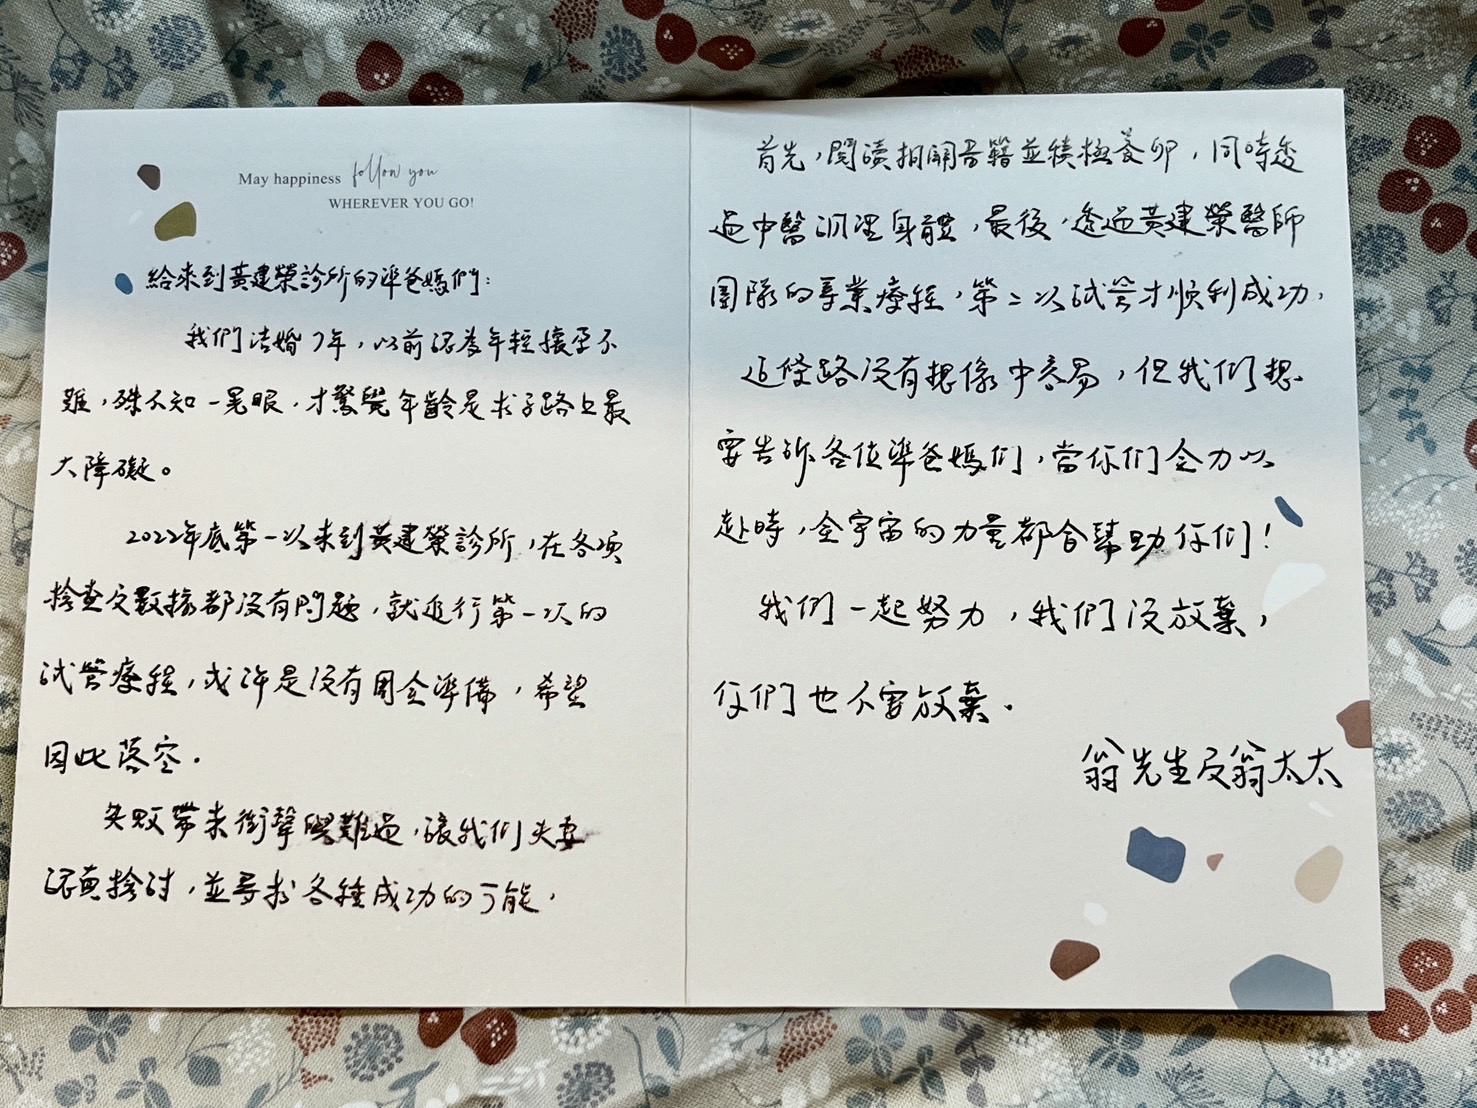 May happiness follow you
WHEREVER YOU GO!
給來到黃建榮診所的準爸媽們：
我們結婚7年，以前認為年輕懷孕不
難，殊不知一晃眼，才驚覺年齡是求子路上最
大障礙。
2022年底第一次來到黃建榮診所，在各項
檢查及數據都沒有問題，就進行第一次的
試管療程，或許是沒有周全準備，希望
因此落空。
失敗帶來衝擊與難過，讓我們夫妻
認真檢討，並尋求各種成功的可能，
首先，閱讀相關書籍並積極養卵，同時透
過中醫調理身體，最後，透過黃建榮醫師
團隊的專業療程，第二次試管才順利成功，
這條路沒有想像中容易，但我們想
要告訴各位準爸媽們，當你們全力以
赴時，全宇宙的力量都會幫助你們！
我們一起努力，我們沒放棄，
你們也不要放棄。
翁先生及翁太太